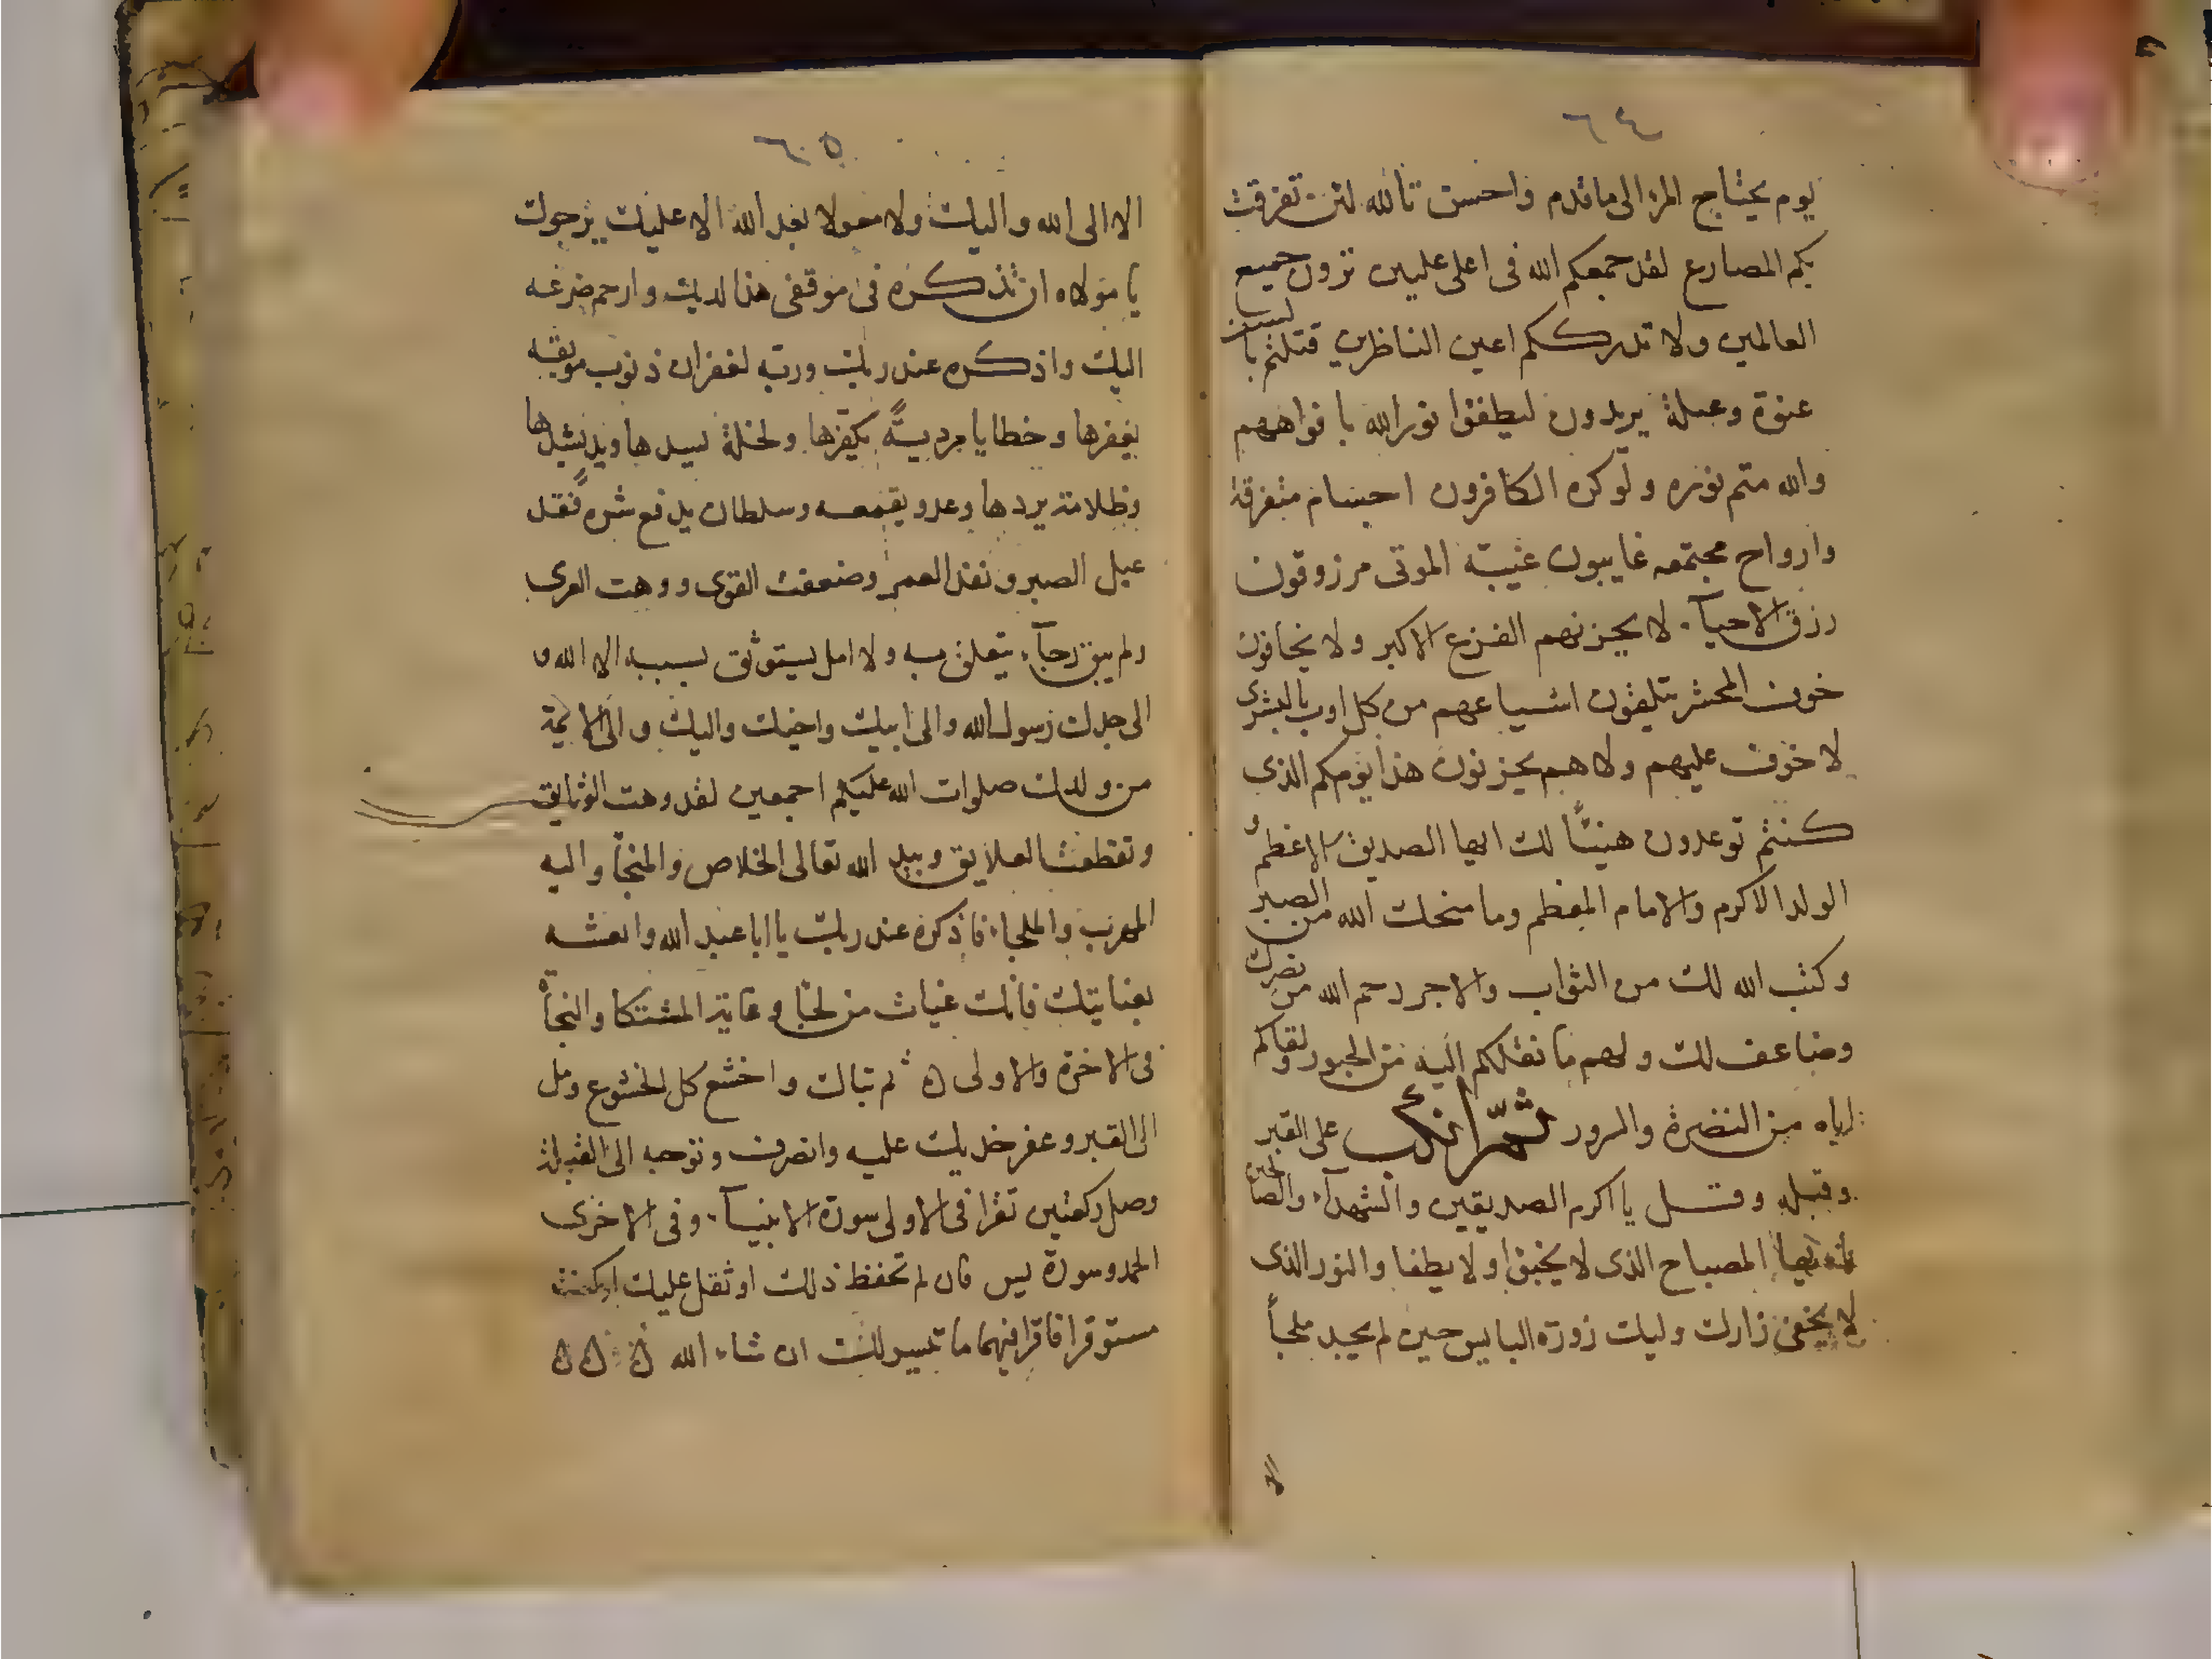 ٦٤
يوم يحتاج المرؤ الى ما قدم واحسن تالله لئن تفرقت
بكم المصارع لقد جمعكم الله فى اعلى عليين ترون جميع
العالمين ولا تدرككم اعين الناظرين قتلتم بأسنت
عنوة وعيلة يريدون ليطفئوا نور الله بافواههم
والله متم نوره ولو كره الكافرون اجسام متفرقة
وارواح مجتمعه غايبون غيبة الموتى مرزوقون
رزق الاحيآء لا يحزنهم الفزع الاكبر ولا يخافون
خوف المحشر يتلقون اشياعهم من كل اوب بالبشرى
لا خوف عليهم ولا هم يحزنون هذا يومكم الذى
كنتم توعدون هنيئًا لك ايها الصديق الاعظم
الولد الاكرم والامام المعظم وما منحك الله من الصبر
وكتب الله لك من الثواب والاجر رحم الله من نصرك
وضاعف لك ولهم ما نقلكم اليه من الحبور ولقاكم
اياه من النضرة والسرور ثمّ انكب على القبر
وقبله وقـل يا اكرم الصديقين والشهدآء والصالحين
ايها المصباح الذى لا يخبو ولا يطفا والنور الذى
لا يخفى زارك وليك زورة البايس حين لم يجد ملجأً
الا
٦٥
الا الى الله واليك ولا معولا بعد الله الا عليك يرجوك
يا مولاه ان تذكره فى موقفى هذا لديك وارحم ضرعه
اليك واذكره عند ربك وربه لغفران ذنوب موبقه
يغفرها وخطايا مرديةً يكفرها ولخلة يسدها ويد يشدها
وظلامة يردها وعدو يقمعه وسلطان يدفع شره فقد
عيل الصبر ونفد العمر وضعفت القوى ووهت العرى
ولم يبق رجآء يتعلق به ولا امل يستوثق بسببه الا الله و
الى جدك رسول الله والى ابيك واخيك واليك والى الائمة
من ولدك صلوات الله عليكم اجمعين لقد وهت الوثايق
وتقطعت العلايق وبيد الله تعالى الخلاص والمنجأ واليه
المهرب والملجاء فاذكره عند ربك يا ابا عبد الله وانعشه
بعنايتك فانك غياث من لجا وغاية المشتكا والنجأة
فى الاخرة والاولى ه ثم تباك واخشع كل الخشوع ومل
الى القبر وعفر خديك عليه وانصرف وتوجه الى القبلة
وصل ركعتين تقرا فى الاولى سورة الانبيآء وفى الاخرى
الحمد وسورة يس فان لم تحفظ ذلك او ثقل عليك او كنت
مستوفزا فاقرا فيهما ما تيسر لك ان شاء الله ه ه ه